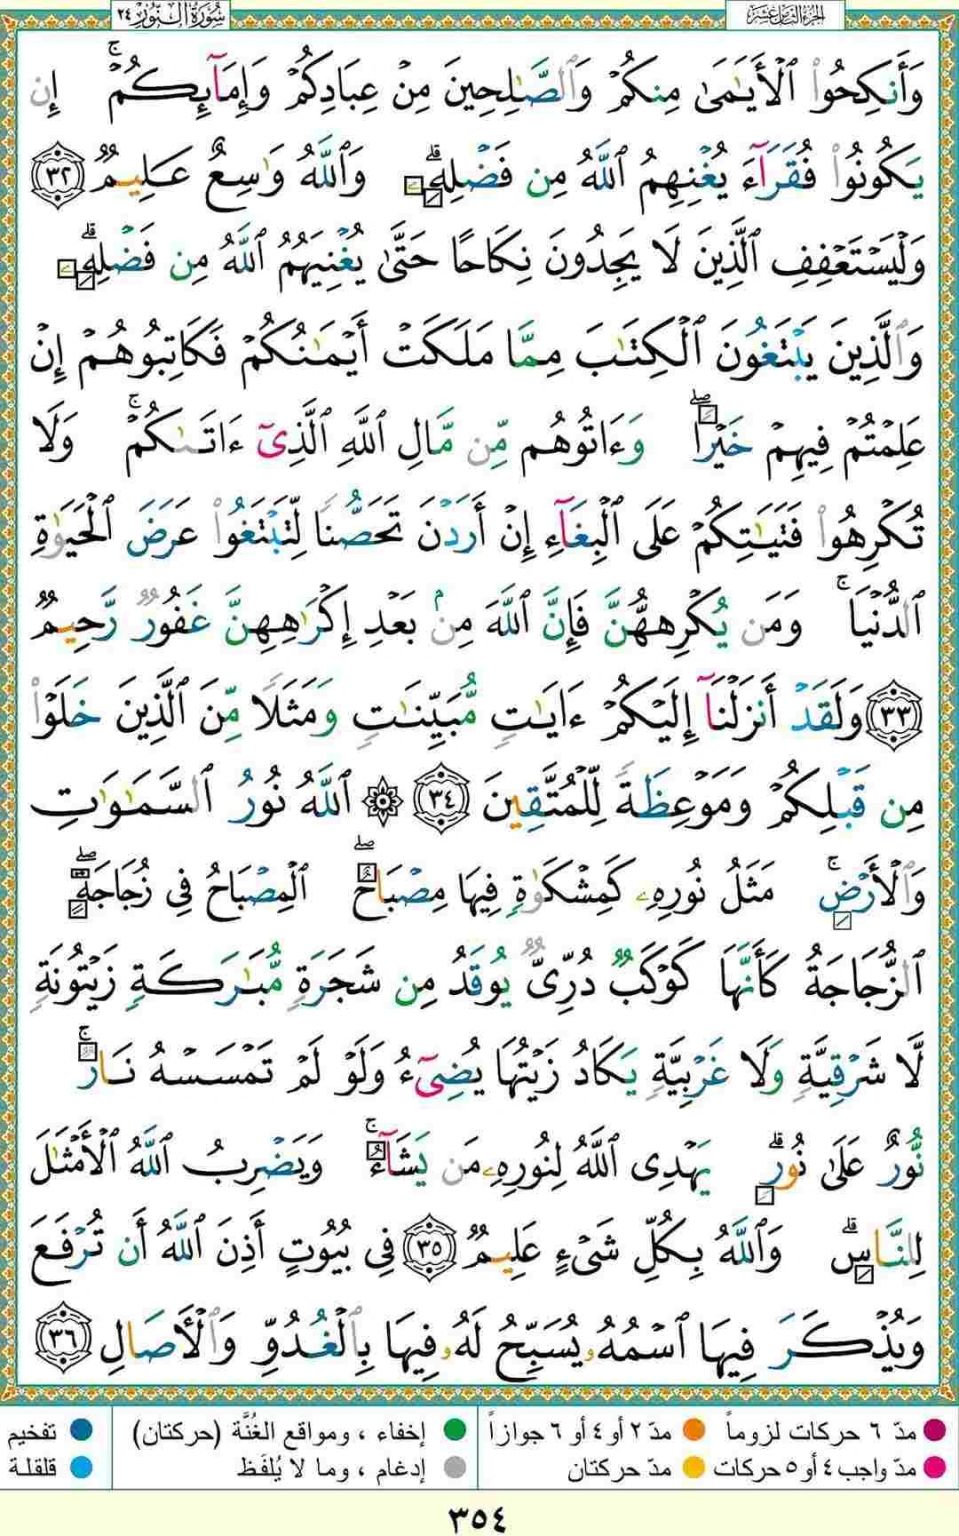 الجزء الثامن عشر
سورة النور ٢٤
وَأَنكِحُوا۟ ٱلْأَيَـٰمَىٰ مِنكُمْ وَٱلصَّـٰلِحِينَ مِنْ عِبَادِكُمْ وَإِمَآئِكُمْ ۚ إِن
يَكُونُوا۟ فُقَرَآءَ يُغْنِهِمُ ٱللَّهُ مِن فَضْلِهِۦ ۗ وَٱللَّهُ وَٰسِعٌ عَلِيمٌ ٣٢
وَلْيَسْتَعْفِفِ ٱلَّذِينَ لَا يَجِدُونَ نِكَاحًا حَتَّىٰ يُغْنِيَهُمُ ٱللَّهُ مِن فَضْلِهِۦ ۗ
وَٱلَّذِينَ يَبْتَغُونَ ٱلْكِتَـٰبَ مِمَّا مَلَكَتْ أَيْمَـٰنُكُمْ فَكَاتِبُوهُمْ إِنْ
عَلِمْتُمْ فِيهِمْ خَيْرًا ۖ وَءَاتُوهُم مِّن مَّالِ ٱللَّهِ ٱلَّذِىٓ ءَاتَىٰكُمْ ۚ وَلَا
تُكْرِهُوا۟ فَتَيَـٰتِكُمْ عَلَى ٱلْبِغَآءِ إِنْ أَرَدْنَ تَحَصُّنًا لِّتَبْتَغُوا۟ عَرَضَ ٱلْحَيَوٰةِ
ٱلدُّنْيَا ۚ وَمَن يُكْرِههُّنَّ فَإِنَّ ٱللَّهَ مِنۢ بَعْدِ إِكْرَٰهِهِنَّ غَفُورٌ رَّحِيمٌ
٣٣ وَلَقَدْ أَنزَلْنَآ إِلَيْكُمْ ءَايَـٰتٍ مُّبَيِّنَـٰتٍ وَمَثَلًا مِّنَ ٱلَّذِينَ خَلَوْا۟
مِن قَبْلِكُمْ وَمَوْعِظَةً لِّلْمُتَّقِينَ ٣٤ ۞ ٱللَّهُ نُورُ ٱلسَّمَـٰوَٰتِ
وَٱلْأَرْضِ ۚ مَثَلُ نُورِهِۦ كَمِشْكَوٰةٍ فِيهَا مِصْبَاحٌ ۖ ٱلْمِصْبَاحُ فِى زُجَاجَةٍ ۖ
ٱلزُّجَاجَةُ كَأَنَّهَا كَوْكَبٌ دُرِّىٌّ يُوقَدُ مِن شَجَرَةٍ مُّبَـٰرَكَةٍ زَيْتُونَةٍ
لَّا شَرْقِيَّةٍ وَلَا غَرْبِيَّةٍ يَكَادُ زَيْتُهَا يُضِىٓءُ وَلَوْ لَمْ تَمْسَسْهُ نَارٌ ۚ
نُّورٌ عَلَىٰ نُورٍ ۗ يَهْدِى ٱللَّهُ لِنُورِهِۦ مَن يَشَآءُ ۚ وَيَضْرِبُ ٱللَّهُ ٱلْأَمْثَـٰلَ
لِلنَّاسِ ۗ وَٱللَّهُ بِكُلِّ شَىْءٍ عَلِيمٌ ٣٥ فِى بُيُوتٍ أَذِنَ ٱللَّهُ أَن تُرْفَعَ
وَيُذْكَرَ فِيهَا ٱسْمُهُۥ يُسَبِّحُ لَهُۥ فِيهَا بِٱلْغُدُوِّ وَٱلْـَٔاصَالِ ٣٦
مدّ ٦ حركات لزوماً
مدّ ٢ أو ٤ أو ٦ جوازاً
إخفاء ، ومواقع الغُنَّة (حركتان)
تفخيم
مدّ واجب ٤ أو ٥ حركات
مدّ حركتان
إدغام ، وما لا يُلفَظ
قلقلة
٣٥٤